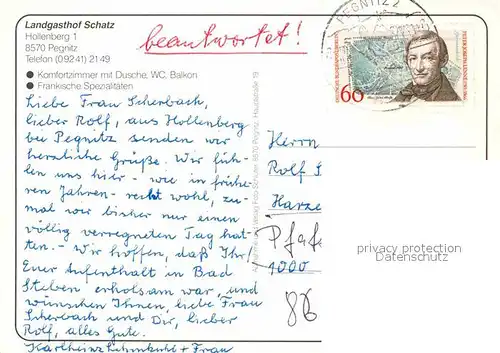 Landgasthof Schatz
Hollenberg 1
8570 Pegnitz
Telefon (09241) 2149
Komfortzimmer mit Dusche, WC, Balkon
Fränkische Spezialitäten
beantwortet!
PEGNITZ 2
60
Liebe Frau Scherbach,
lieber Rolf, aus Hollenberg
bei Pegnitz senden wir
herzliche Grüße. Wir füh-
len uns hier - wie in frühe-
ren Jahren - recht wohl, zu-
mal wir bisher nur einen
völlig verregneten Tag hat-
ten. - Wir hoffen, daß Ihr/
Euer Aufenthalt in Bad
Steben erholsam war, und
wünschen Ihnen, liebe Frau
Scherbach und Dir, lieber
Rolf, alles Gute.
Karlheinz + Frau
Herrn
Rolf S
Harze
Pfafe
1000
privacy protection
Datenschutz